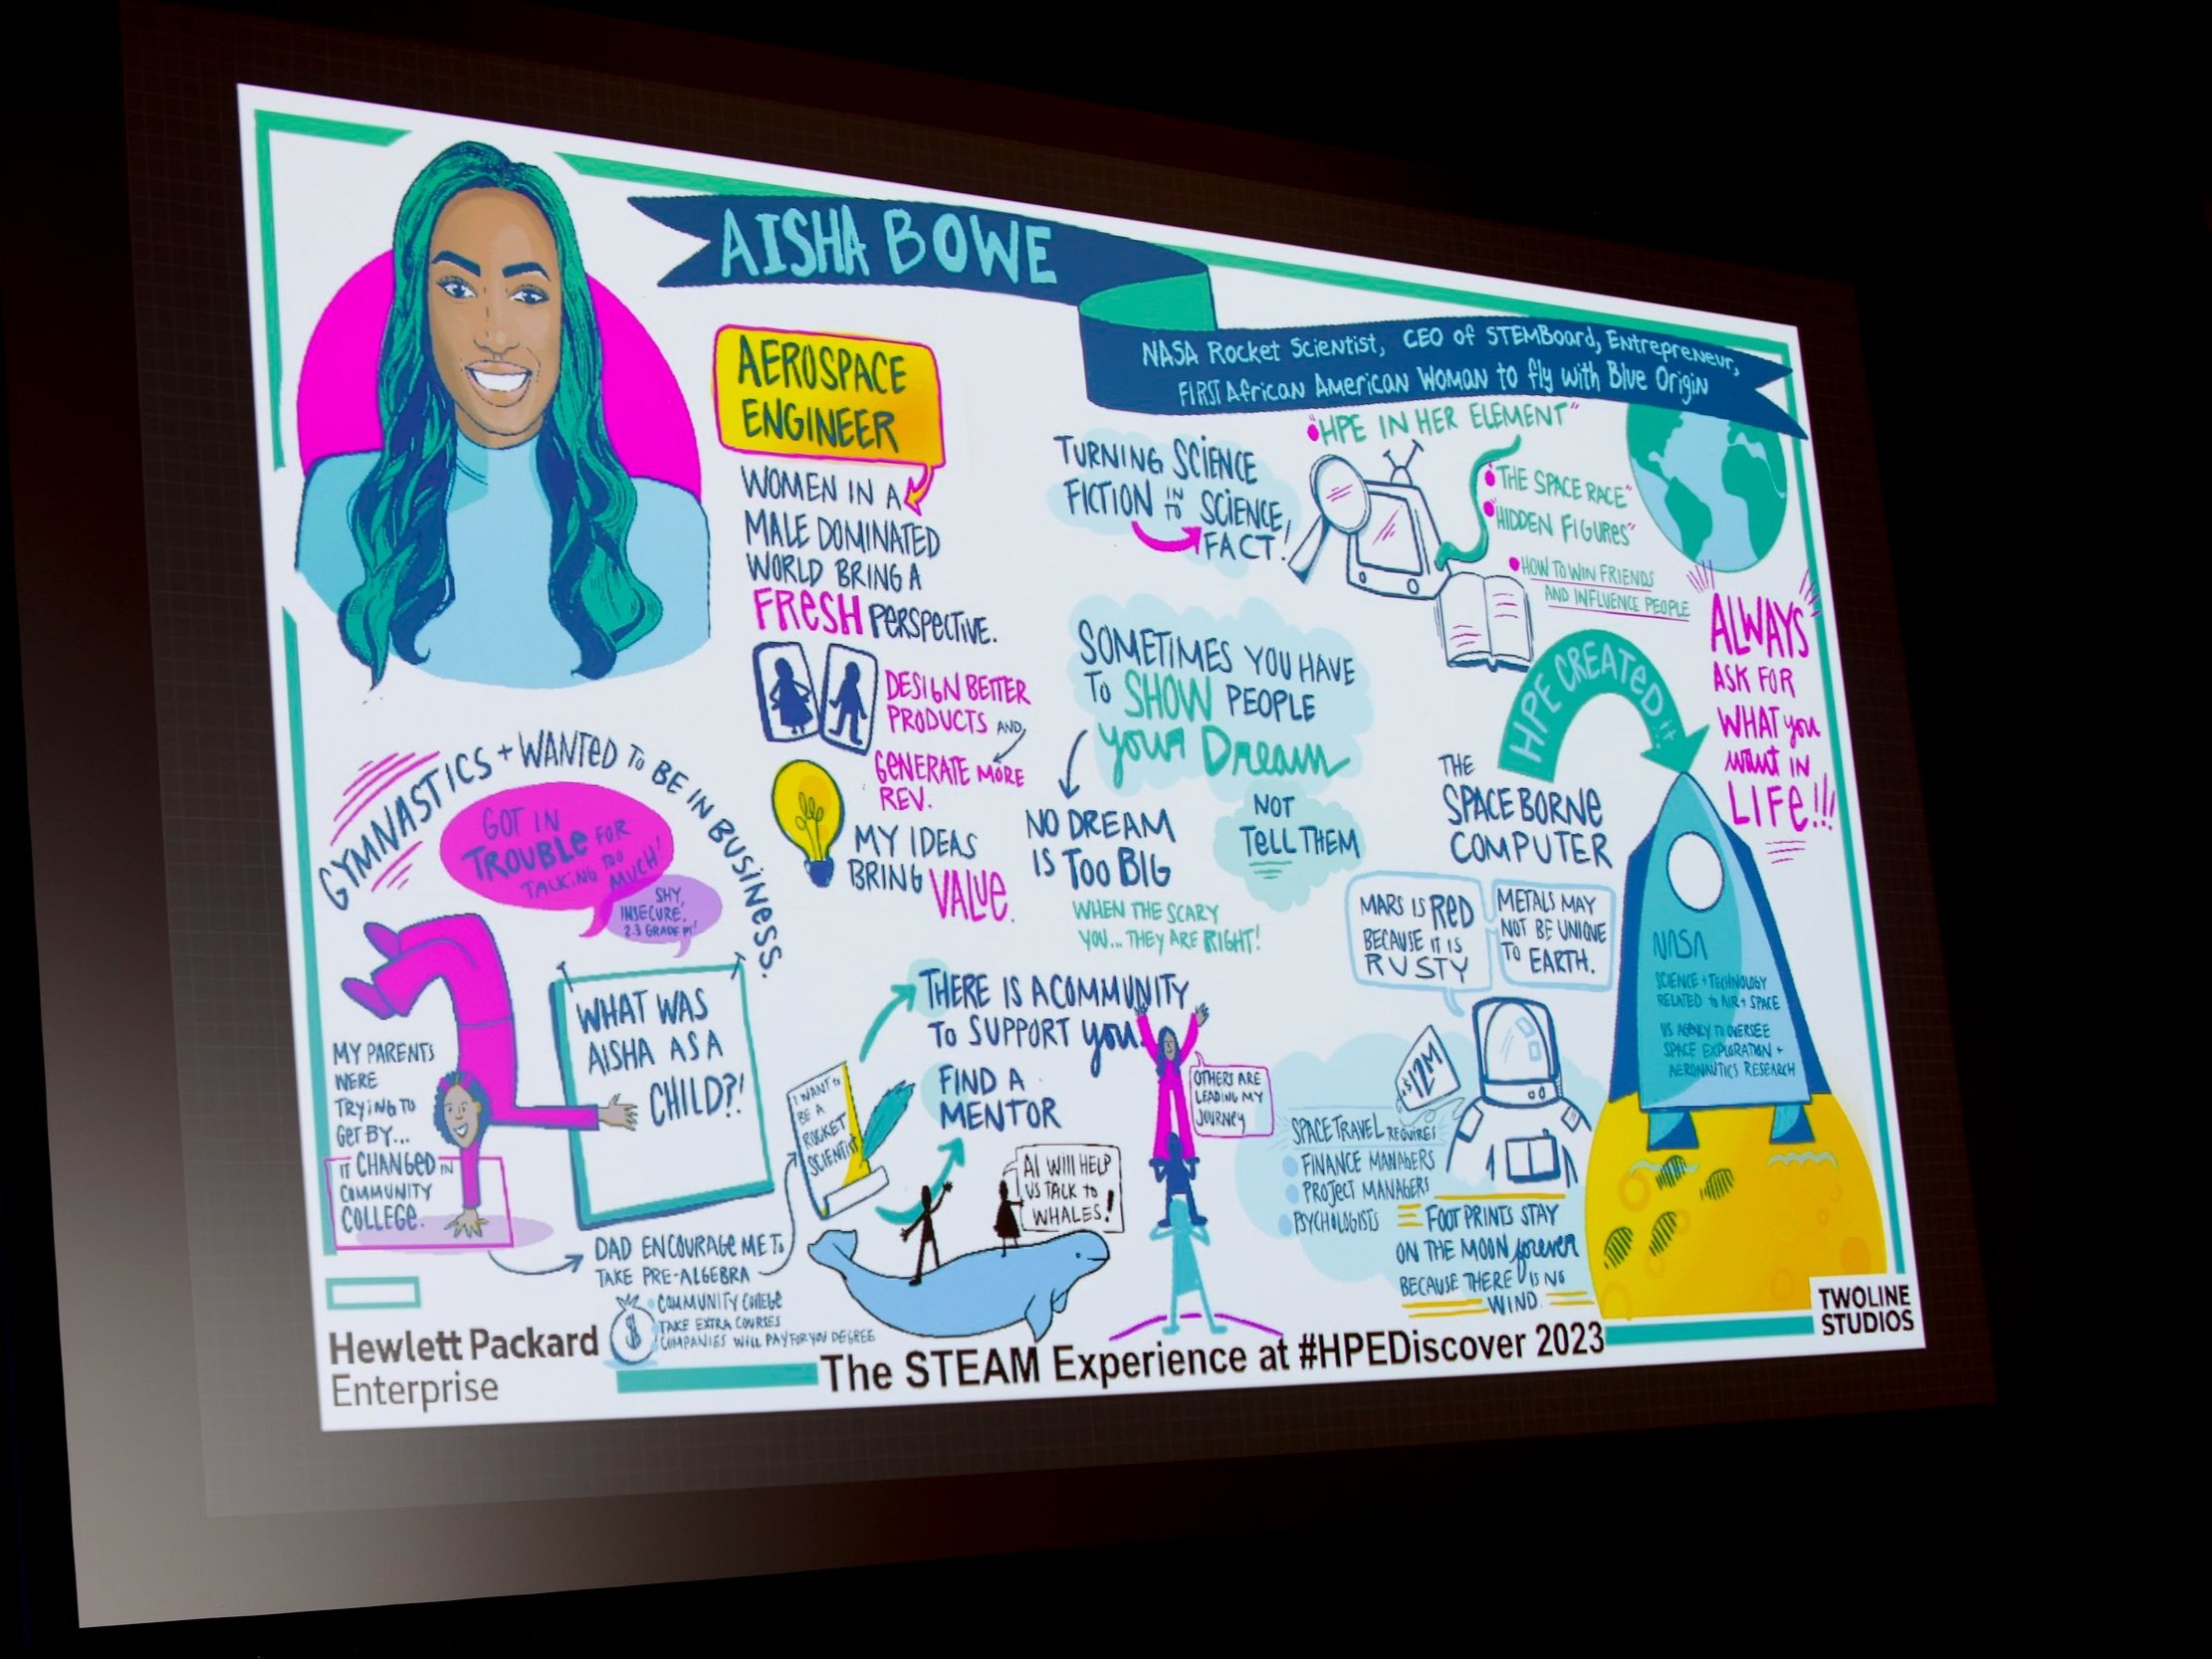 AISHA BOWE
NASA Rocket Scientist, CEO of STEMBoard, Entrepreneur,
FIRST African American Woman to fly with Blue Origin
AEROSPACE
ENGINEER
WOMEN IN A
MALE DOMINATED
WORLD BRING A
FRESH PERSPECTIVE.
DESIGN BETTER
PRODUCTS AND
GENERATE MORE
REV.
MY IDEAS
BRING VALUE.
TURNING SCIENCE
FICTION IN TO SCIENCE
FACT!
"HPE IN HER ELEMENT"
"THE SPACE RACE"
"HIDDEN FIGURES"
HOW TO WIN FRIENDS
AND INFLUENCE PEOPLE
ALWAYS
ASK FOR
WHAT you
want IN
LIFE!!!
SOMETIMES YOU HAVE
To SHOW PEOPLE
your Dream
NOT
TELL THEM
NO DREAM
IS TOO BIG
WHEN THE SCARY
YOU... THEY ARE RIGHT!
HPE CREATED it
THE
SPACEBORNE
COMPUTER
MARS IS RED
BECAUSE IT IS
RUSTY
METALS MAY
NOT BE UNIQUE
TO EARTH.
NASA
SCIENCE + TECHNOLOGY
RELATED to AIR + SPACE
US AGENCY TO OVERSEE
SPACE EXPLORATION +
AERONAUTICS RESEARCH
GYMNASTICS + WANTED To BE IN BUSINESS.
GOT IN
TROUBLE FOR
TALKING TOO
MUCH!
SHY,
INSECURE.
MY PARENTS
WERE
TRYING TO
GET BY...
IT CHANGED IN
COMMUNITY
COLLEGE.
WHAT WAS
AISHA AS A
CHILD?!
DAD ENCOURAGE ME To
TAKE PRE-ALGEBRA
COMMUNITY COLLEGE
TAKE EXTRA COURSES
COMPANIES WILL PAY FOR YOU DEGREE
$
I WANT to
BE A
ROCKET
SCIENTIST
THERE IS A COMMUNITY
TO SUPPORT you.
FIND A
MENTOR
AI WILL HELP
US TALK to
WHALES!
OTHERS ARE
LEADING MY
JOURNEY
$12M
SPACE TRAVEL REQUIRES
FINANCE MANAGERS
PROJECT MANAGERS
PSYCHOLOGISTS
FOOT PRINTS STAY
ON THE MOON forever
BECAUSE THERE IS NO
WIND.
Hewlett Packard
Enterprise
The STEAM Experience at #HPEDiscover 2023
TWOLINE
STUDIOS